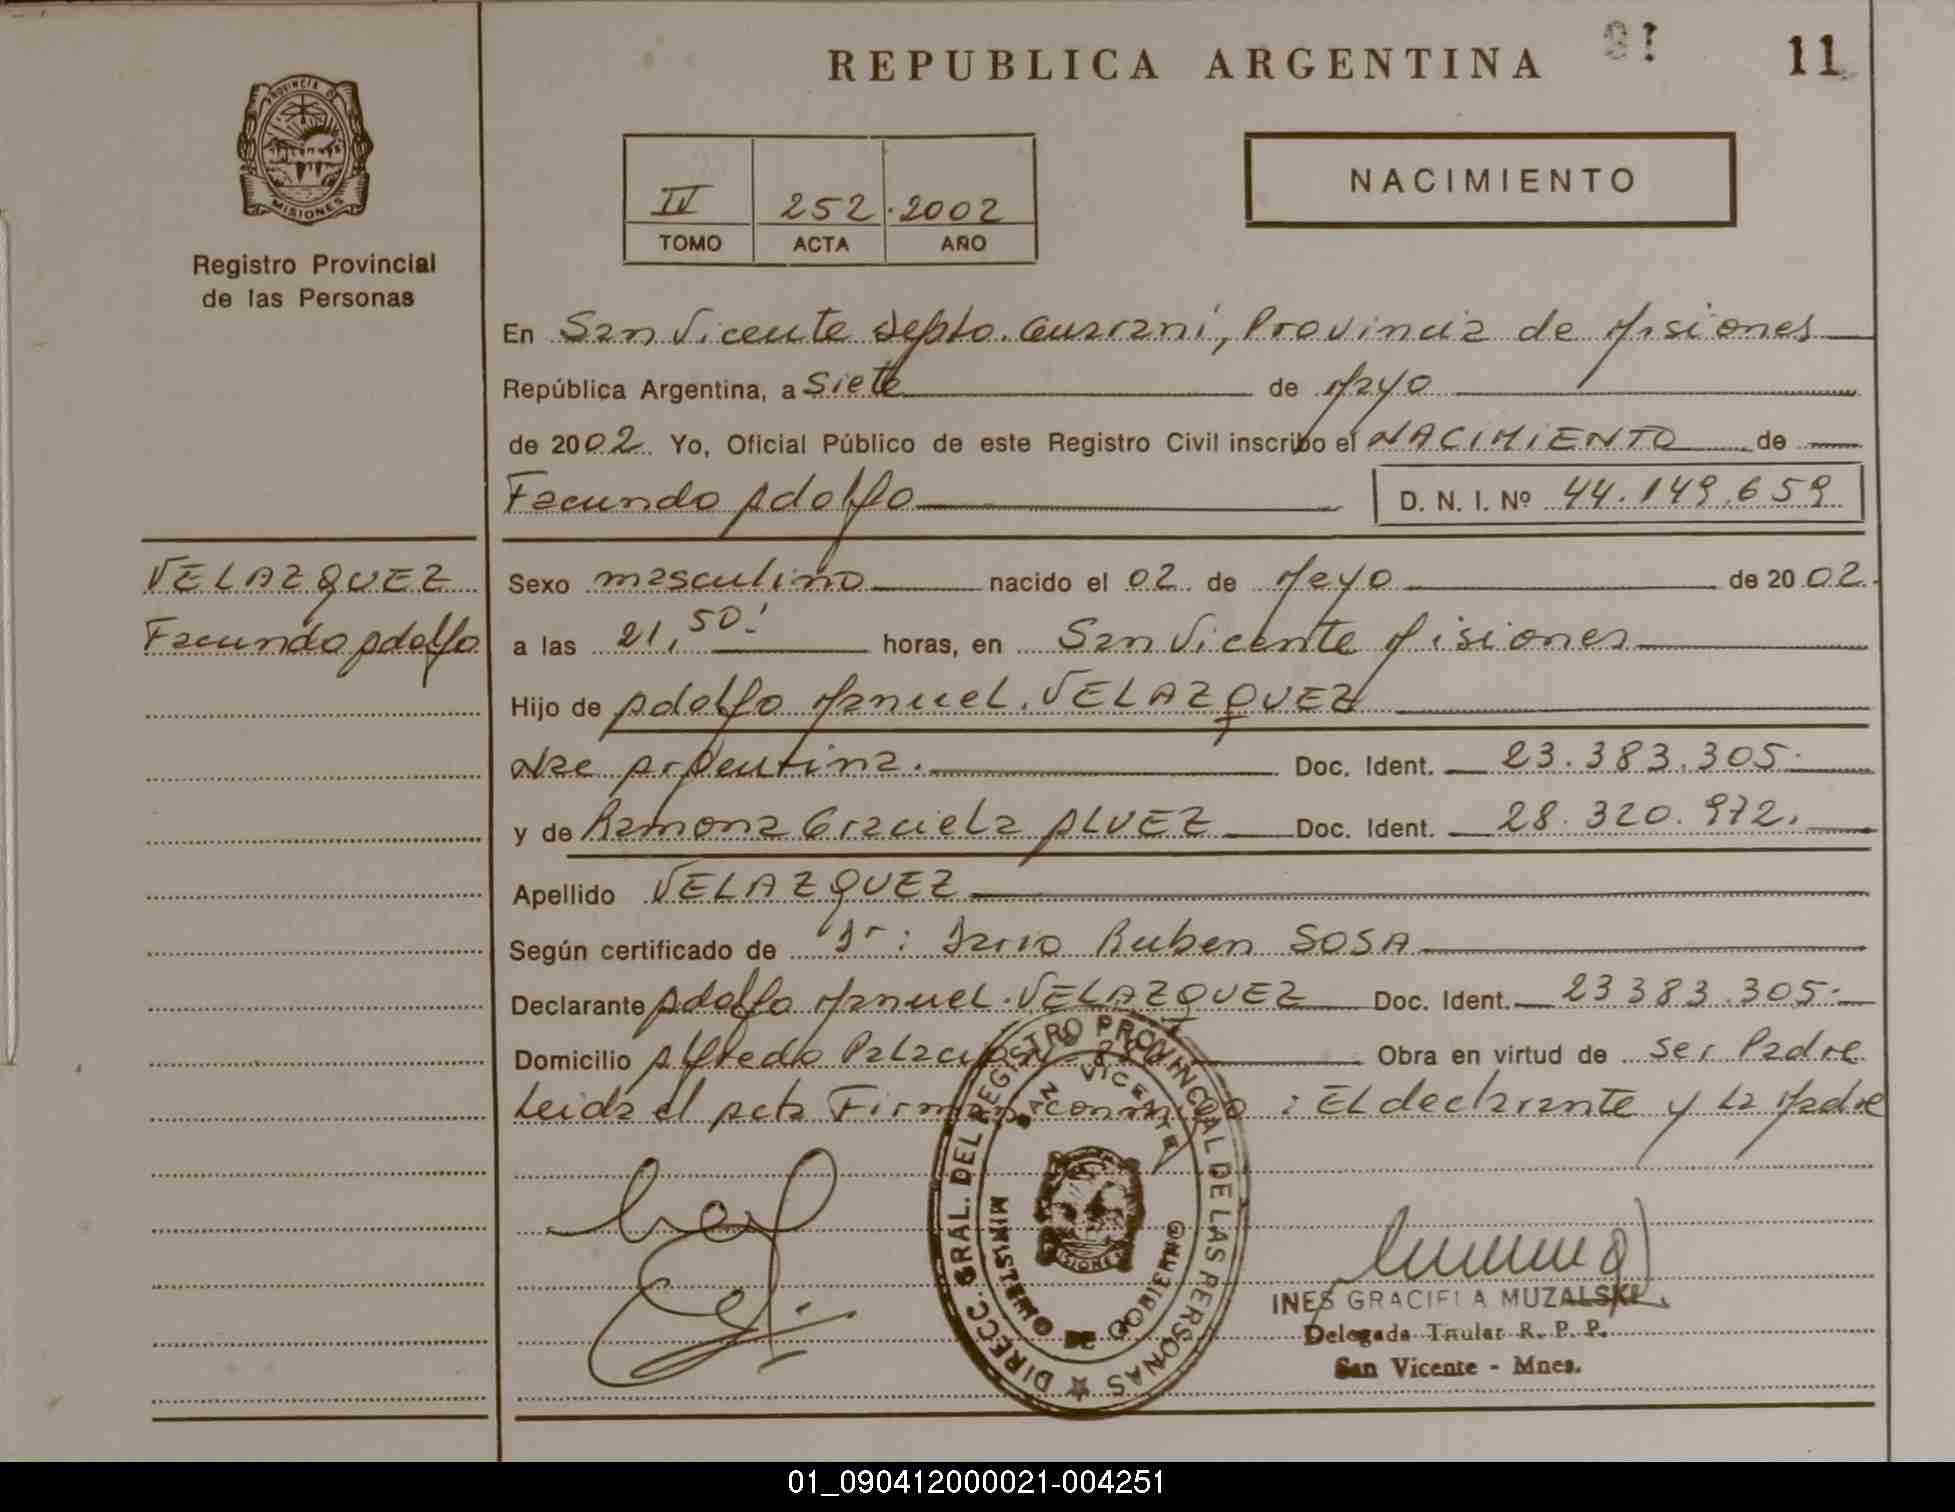 REPUBLICA ARGENTINA
11
PROVINCIA DE
MISIONES
Registro Provincial
de las Personas
IV 252 2002
TOMO ACTA AÑO
NACIMIENTO
En San Vicente depto. Guarani, Provincia de Misiones
República Argentina, a siete de Mayo
de 2002. Yo, Oficial Público de este Registro Civil inscribo el NACIMIENTO de
Facundo Adolfo D. N. I. Nº 44.149.659
VELAZQUEZ
Facundo Adolfo
Sexo masculino nacido el 02 de Mayo de 2002.
a las 21,50' horas, en San Vicente Misiones
Hijo de Adolfo Manuel. VELAZQUEZ
Nac Argentina. Doc. Ident. 23.383.305.
y de Ramona Graciela ALVEZ Doc. Ident. 28.320.972.
Apellido VELAZQUEZ
Según certificado de Dr: Dario Ruben SOSA
Declarante Adolfo Manuel. VELAZQUEZ Doc. Ident. 23 383.305.
Domicilio Alfredo Obra en virtud de ser Padre
Leida el acta Firman conmigo : El declarante y la Madre
DIRECC. GRAL. DEL REGISTRO PROVINCIAL DE LAS PERSONAS
SAN VICENTE
MINISTERIO DE GOBIERNO
INES GRACIELA MUZALSKI
Delegada Titular R. P. P.
San Vicente - Mnes.
01_090412000021-004251